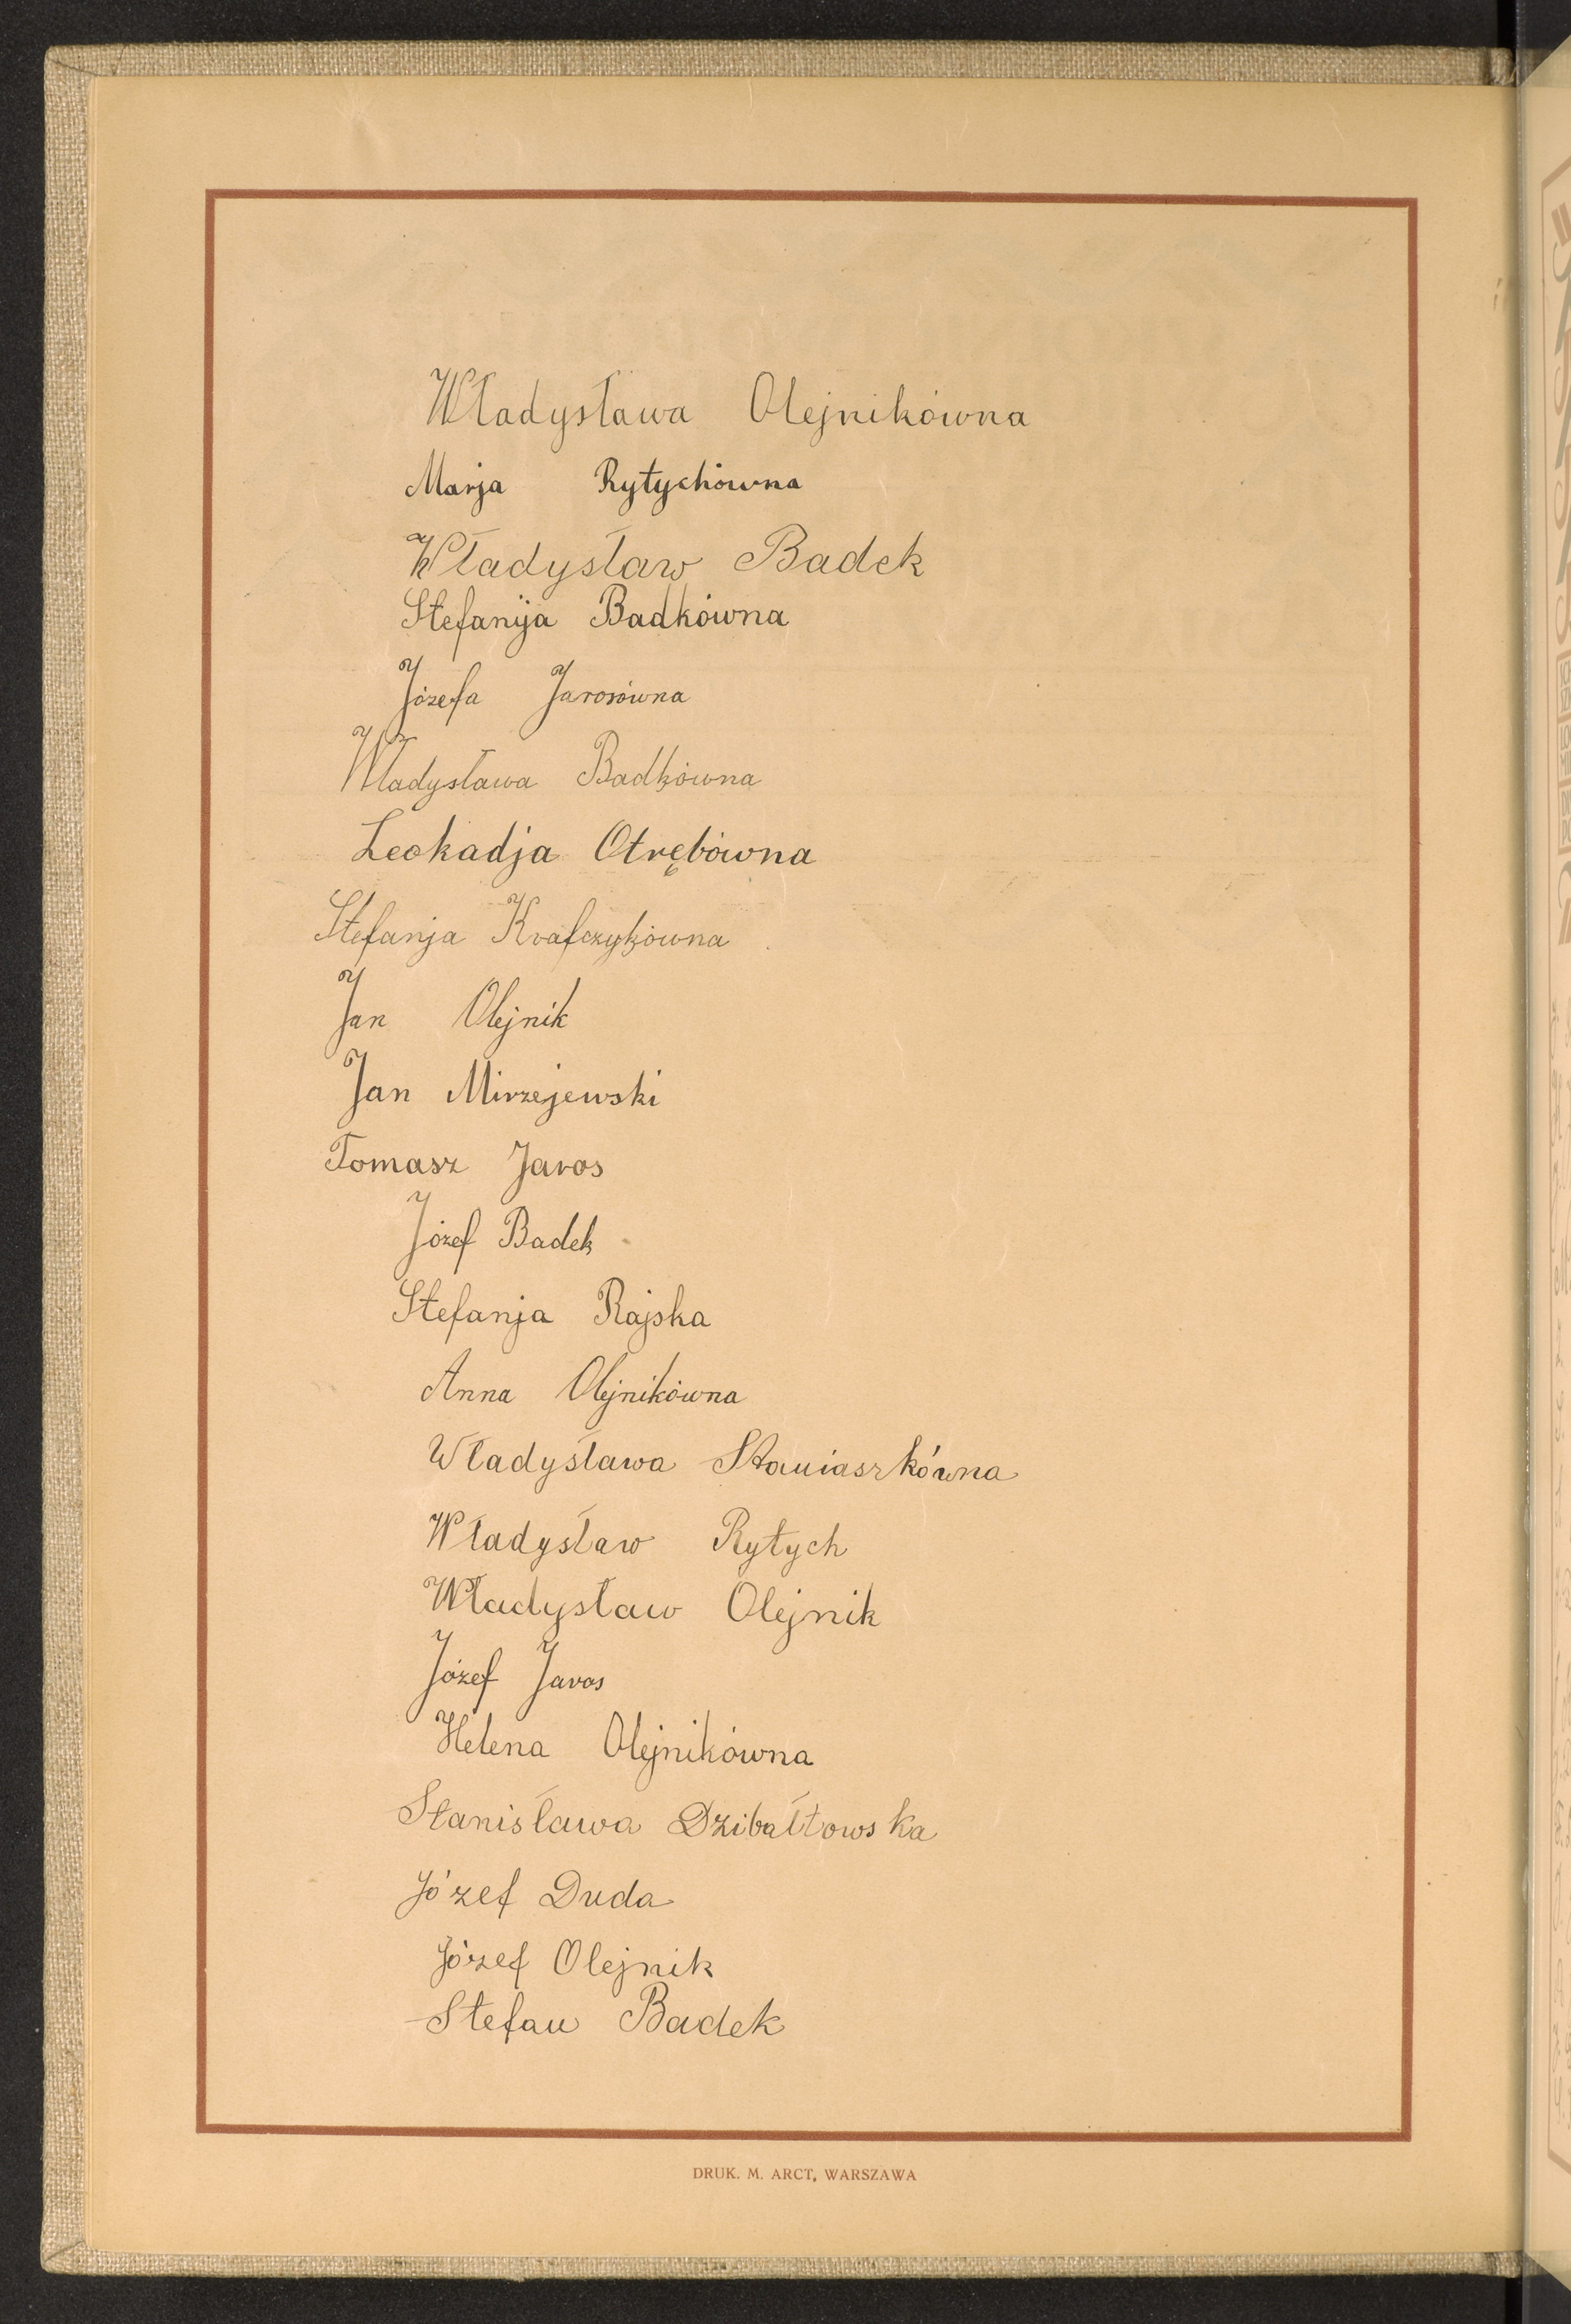 Władysława Olejnikówna
Marja Rytychówna
Władysław Badek
Stefanija Badkówna
Józefa Jarosówna
Władysława Badkówna
Leokadja Otrębówna
Stefanja Krafczykówna
Jan Olejnik
Jan Mirzejewski
Tomasz Jaros
Józef Badek
Stefanja Rajska
Anna Olejnikówna
Władysława Staniaszkówna
Władysław Rytych
Władysław Olejnik
Józef Jaros
Helena Olejnikówna
Stanisława Dzibałtowska
Józef Duda
Józef Olejnik
Stefan Badek
DRUK. M. ARCT, WARSZAWA